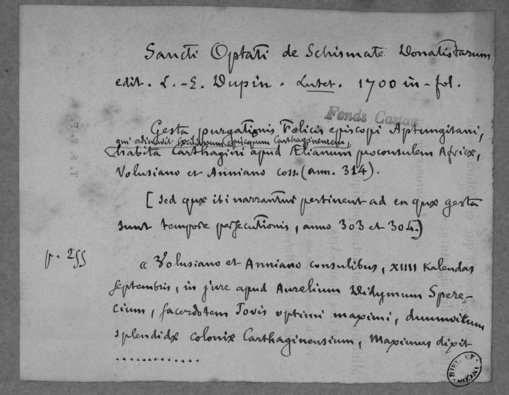 Sancti Optati de Schismate Donatistarum
edit. L.-E. Dupin. Lutet. 1700 in-fol.
Fonds Cagnat
Gesta purgationis Felicis episcopi Aptungitani,
qui ordinavit Cæcilianum episcopum Carthaginensem,
habita Carthagini apud Ælianum proconsulem Africæ,
Volusiano et Anniano coss. (ann. 314).
[sed quæ ibi narrantur pertinent ad ea quæ gesta
sunt tempore persecutionis, anno 303 et 304.]
p. 255
« Volusiano et Anniano consulibus, XIIII Kalendas
septembris, in jure apud Aurelium Didymum Spere-
cium, sacerdotem Jovis optimi maximi, duumvirum
splendidæ coloniæ Carthaginensium, Maximus dixit
.............